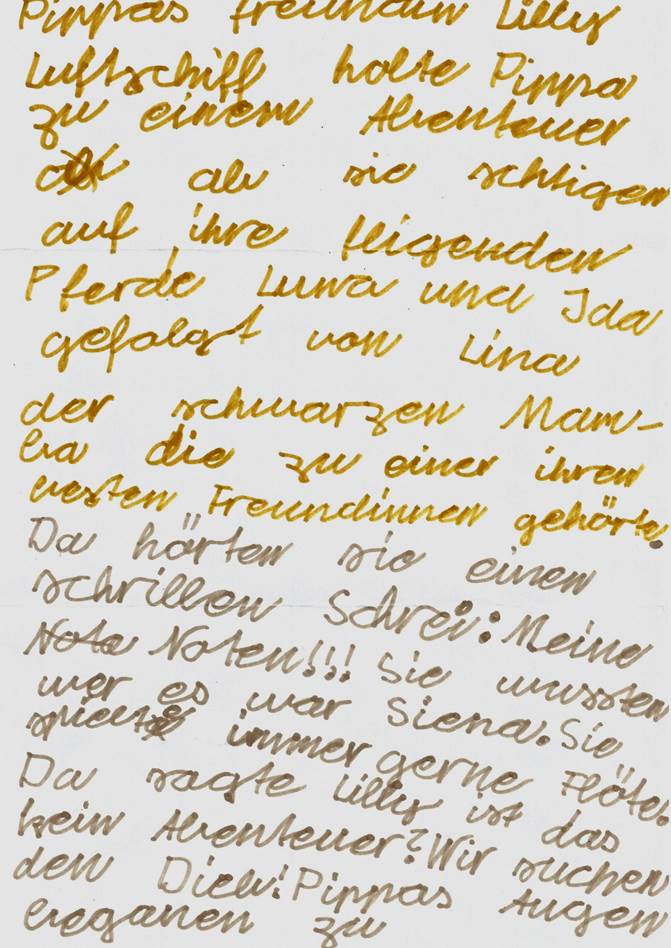 Pippas Freundin Lilly
Luftschiff holte Pippa
zu einem Abenteuer
ab als sie schtigen
auf ihre fligenden
Pferde Luna und Ida
gefolgt von Lina
der schwarzen Mam-
ba die zu einer ihren
besten Freundinnen gehörte.
Da hörten sie einen
schrillen Schrei: Meine
Note Noten!!! Sie wussten
wer es war Siena. Sie
spielte immer gerne Flöte.
Da sagte Lilly ist das
kein Abenteuer? Wir suchen
den Dieb! Pippas Augen
beganen zu